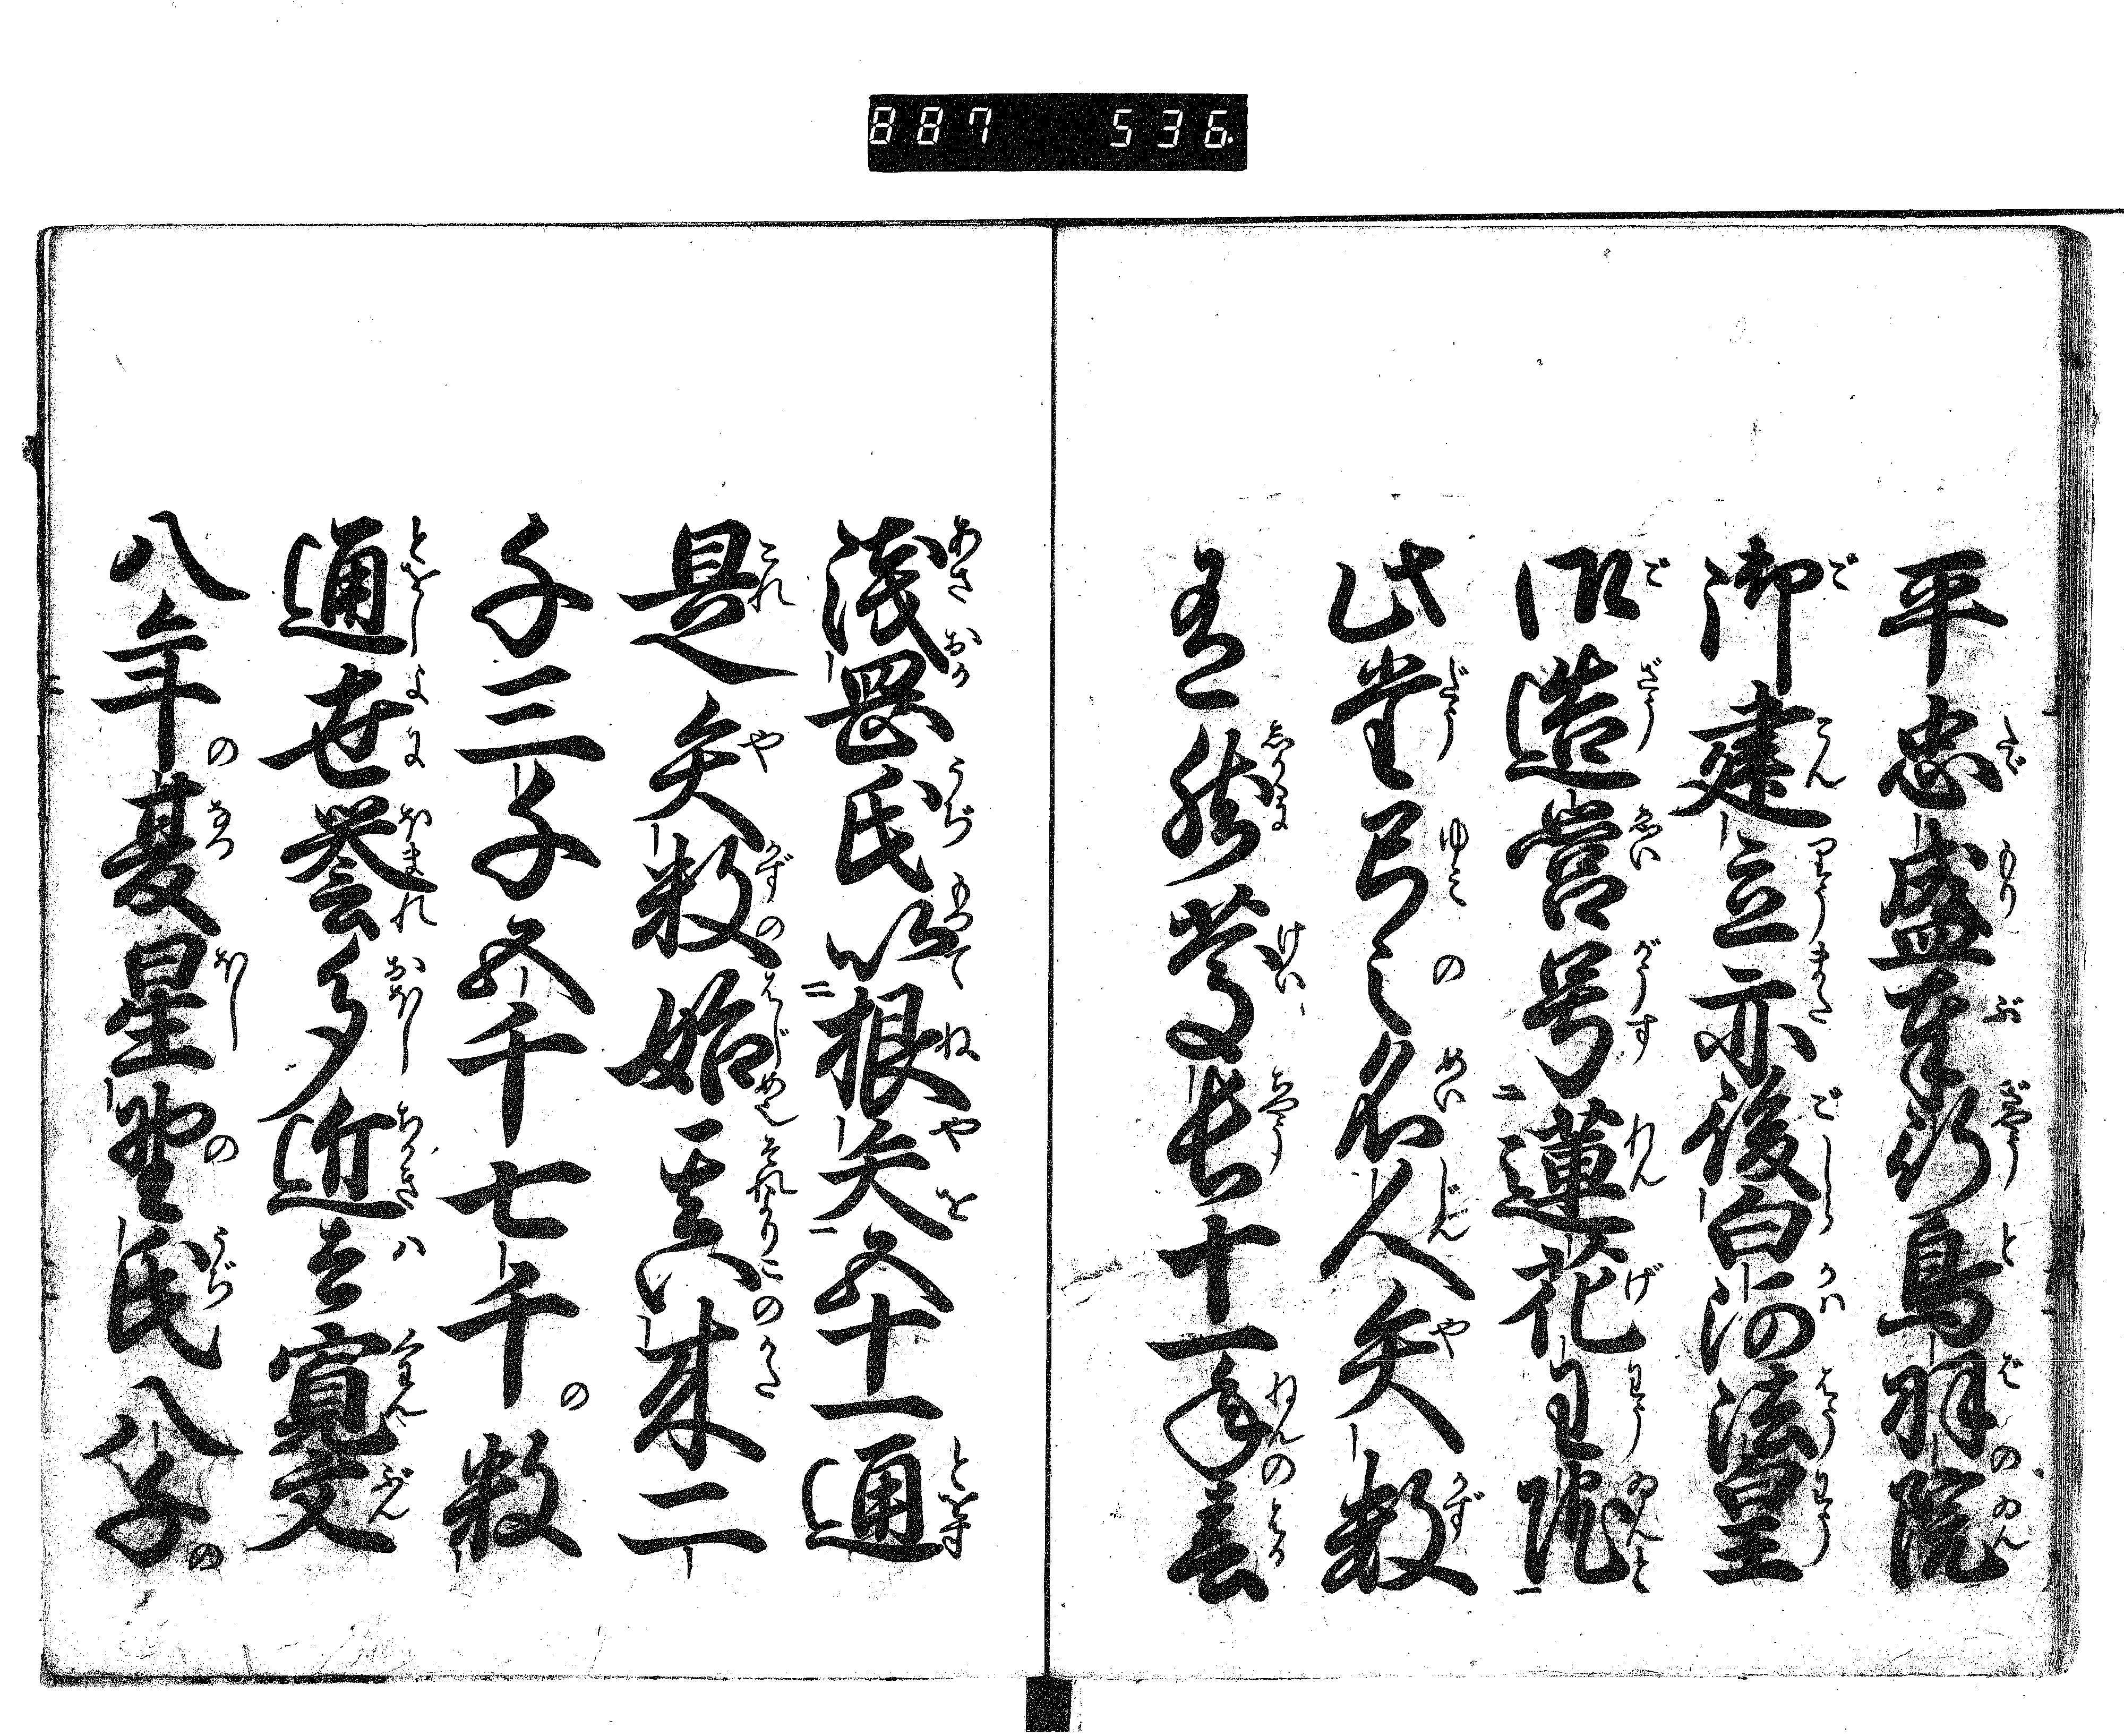 887 536
平忠盛奉行鳥羽院
御建立亦後白河法皇
御造営号蓮花王院
此堂弓之名人矢数
有然慶長十一年春
浅岡氏以根矢五十一通
是矢数始其以来二
千三千五千七千数
通世誉多近者寛文
八年夏星野氏八千